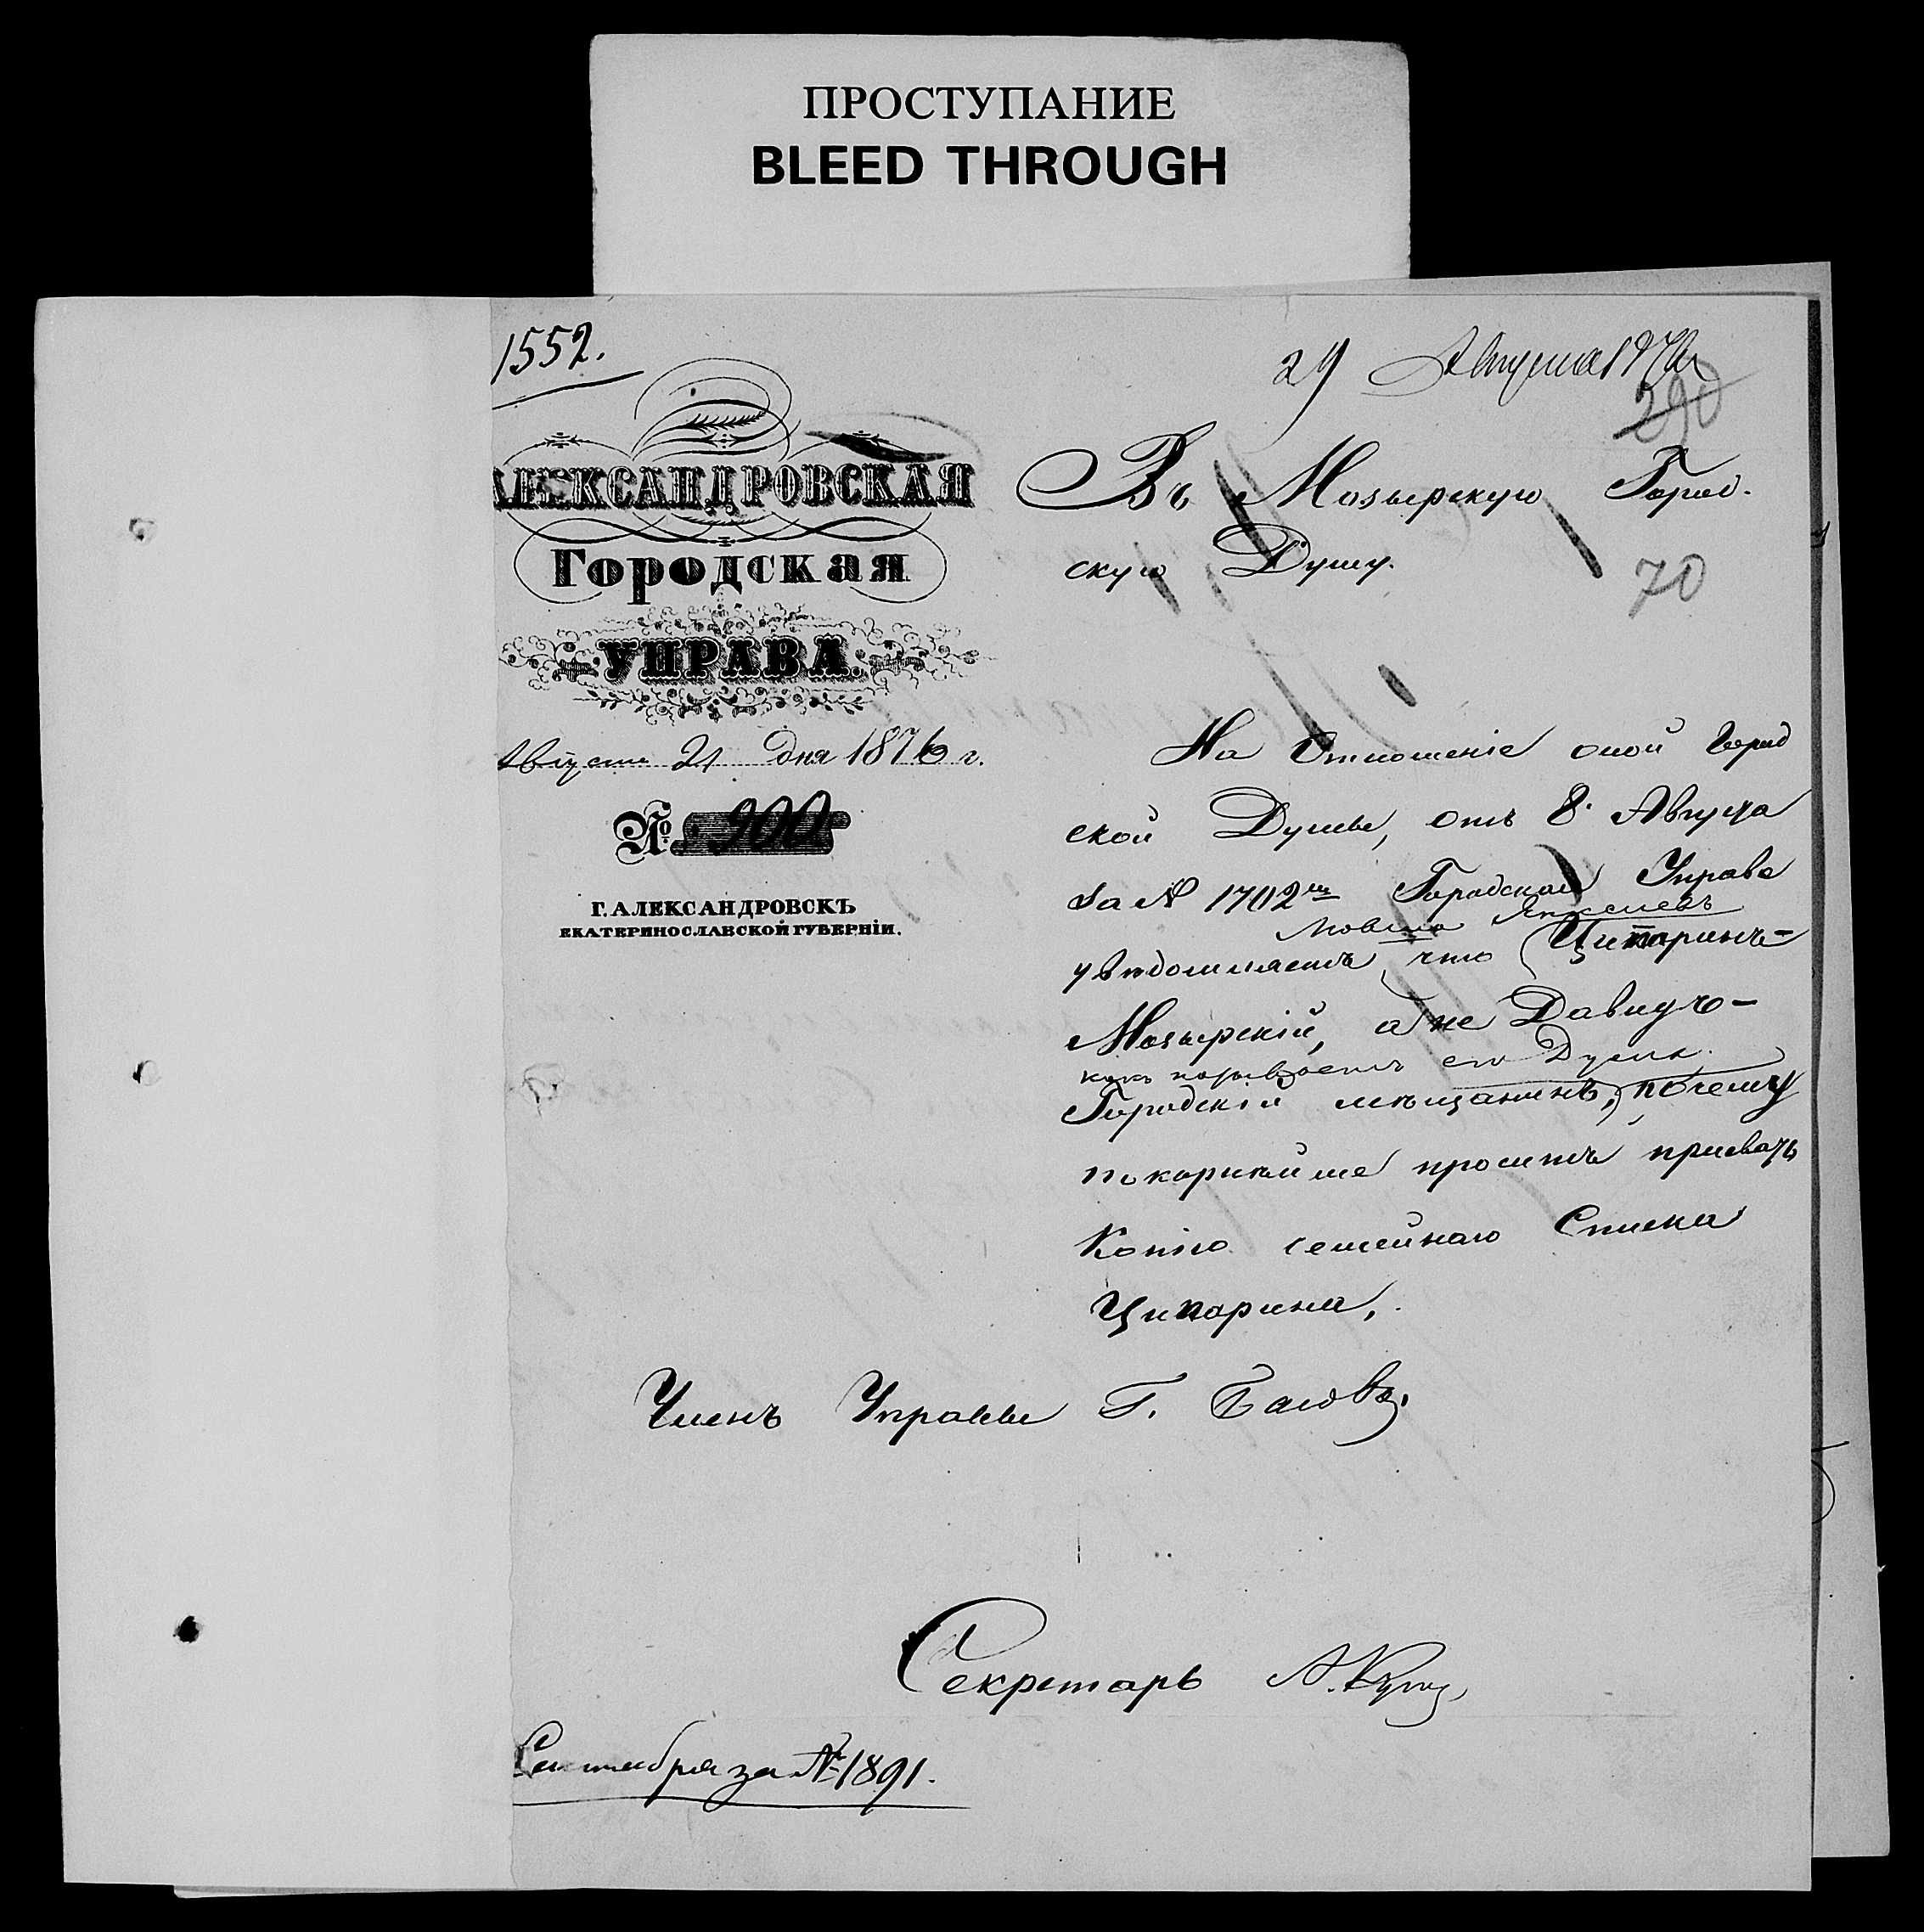 ПРОСТУПАНИЕ
BLEED THROUGH
1552.
29 Августа 1876
290
АЛЕКСАНДРОВСКАЯ
Городская
УПРАВА.
Августа 21 дня 1876 г.
№ 900
Г. АЛЕКСАНДРОВСКЪ
ЕКАТЕРИНОСЛАВСКОЙ ГУБЕРНІИ.
Въ Мозырскую Город-
скую Думу.
70
На Отношеніе оной Город
ской Думы, отъ 8 Августа
за № 1702 Городская Управа
Мовша
увѣдомляетъ, что Ципаринъ-
Мозырскій, а не Давидъ-
его Дума.
Городскій мѣщанинъ, почему
покорнѣйше проситъ прислать
Копію семейнаго Списка
Ципарина.
Членъ Управы Г.
Секретарь А.
Сентября за № 1891.